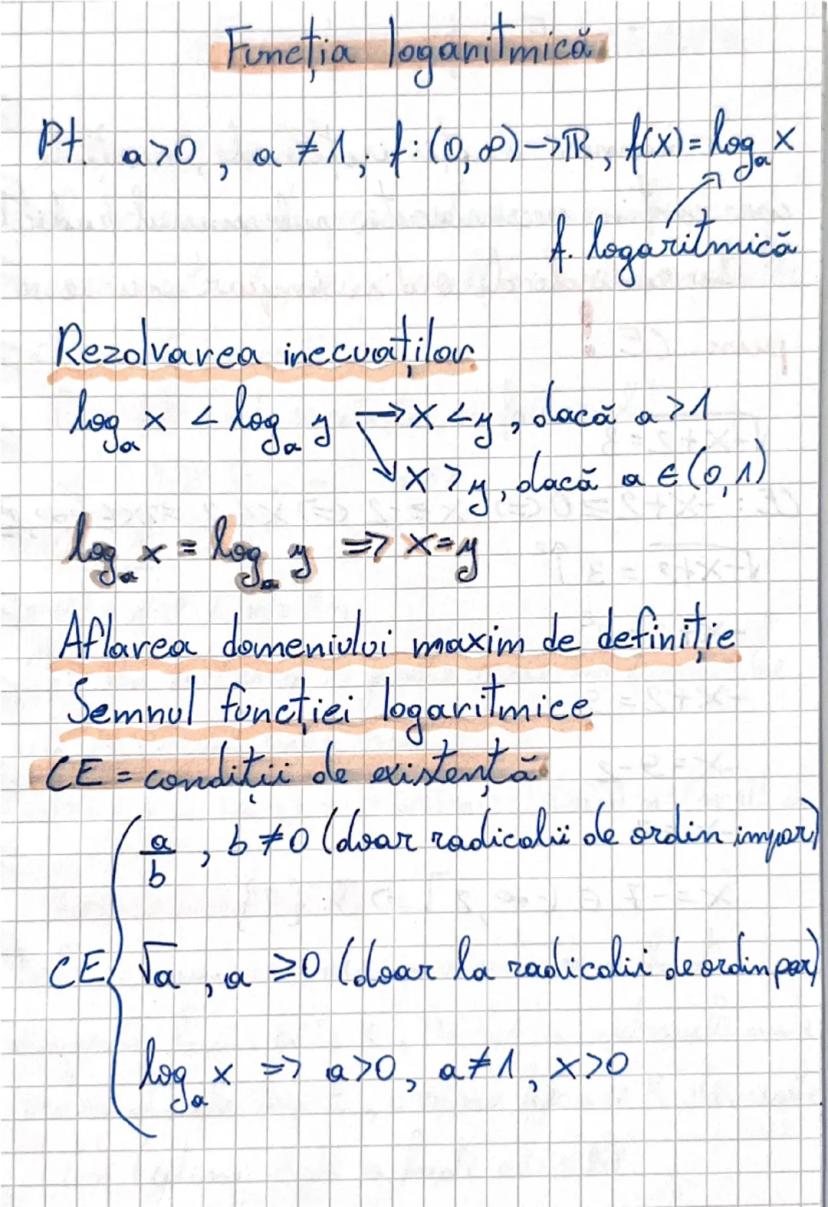 Funcția logaritmică
Pt. a>0, a≠1, f:(0,∞)→ℝ, f(x)=logₐ x
f. logaritmică
Rezolvarea inecuaților
logₐ x < logₐ y → x<y, dacă a>1
↘ x>y, dacă a∈(0,1)
logₐ x = logₐ y => x=y
Aflarea domeniului maxim de definiție
Semnul funcției logaritmice
CE = condiții de existență
a/b, b≠0 (doar radicalii de ordin impar)
CE { √a, a ≥0 (doar la radicalii de ordin par)
logₐ x => a>0, a≠1, x>0